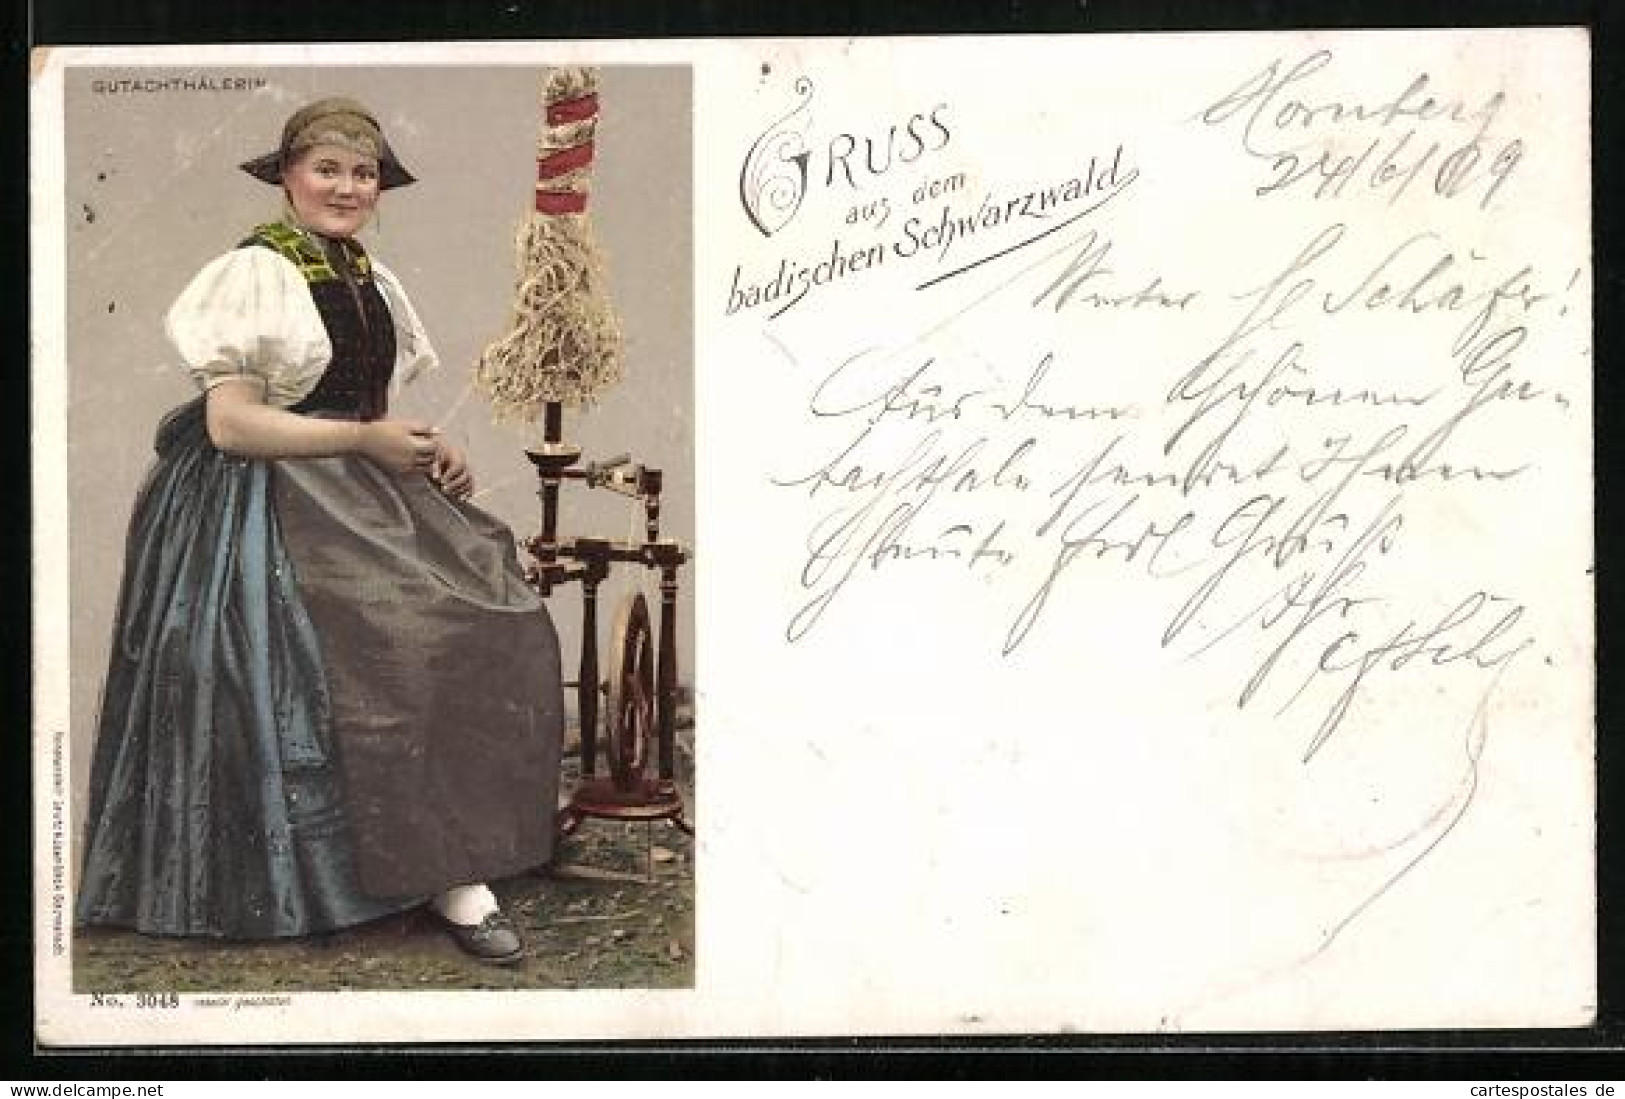 GUTACHTHÄLERIN
GRUSS
aus dem
badischen Schwarzwald
Hornberg
24/6/09
Werter H Schäfer!
Aus dem schönen Gu-
tachthale sendet Ihnen
Grüße
Ihr
No. 3048 gesch
cartespostales de